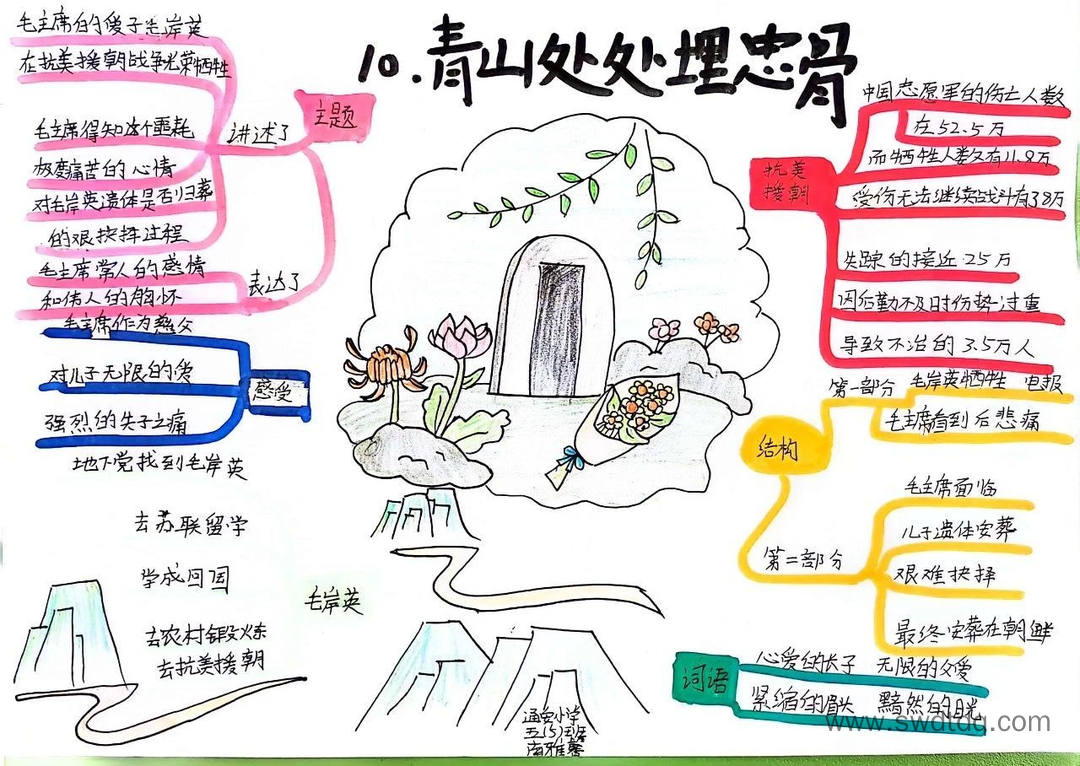 10.青山处处埋忠骨
主题
讲述了
毛主席的爱子毛岸英
在抗美援朝战争光荣牺牲
毛主席得知这个噩耗
极度痛苦的心情
对毛岸英遗体是否归葬
的艰抉择过程
表达了
毛主席常人的感情
和伟人的胸怀
感受
毛主席作为慈父
对儿子无限的爱
强烈的失子之痛
地下党找到毛岸英
去苏联留学
学成回国
去农村锻炼
去抗美援朝
毛岸英
抗美
援朝
中国志愿军的伤亡人数
在52.5万
而牺牲人数又有11.8万
受伤无法继续战斗有38万
失踪的接近25万
因后勤不及时伤势过重
导致不治的3.5万人
结构
第一部分
毛岸英牺牲 电报
毛主席看到后悲痛
第二部分
毛主席面临
儿子遗体安葬
艰难抉择
最终安葬在朝鲜
词语
心爱的长子 无限的父爱
紧缩的眉头 黯然的目光
通安小学
五(5)班
南雅馨
www.swdtdq.com